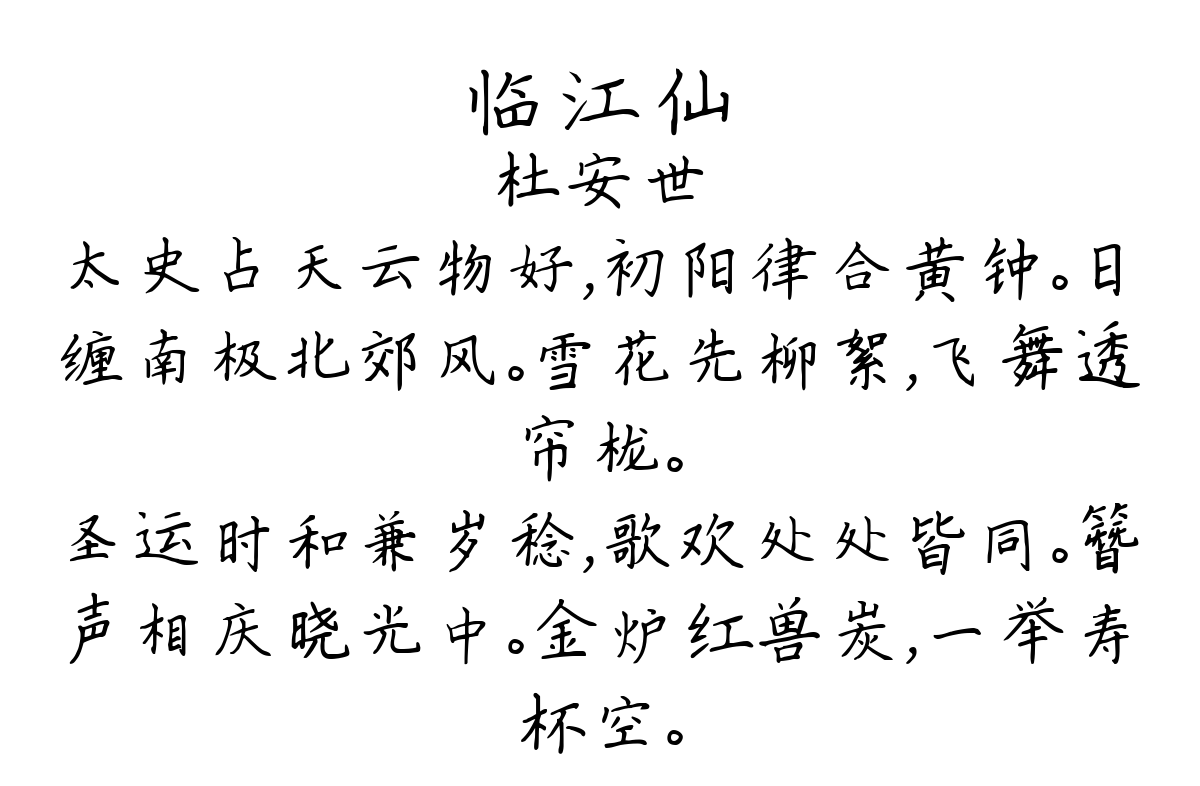 临江仙
杜安世
太史占天云物好,初阳律合黄钟。日
缠南极北郊风。雪花先柳絮,飞舞透
帘栊。
圣运时和兼岁稔,歌欢处处皆同。簪
声相庆晓光中。金炉红兽炭,一举寿
杯空。